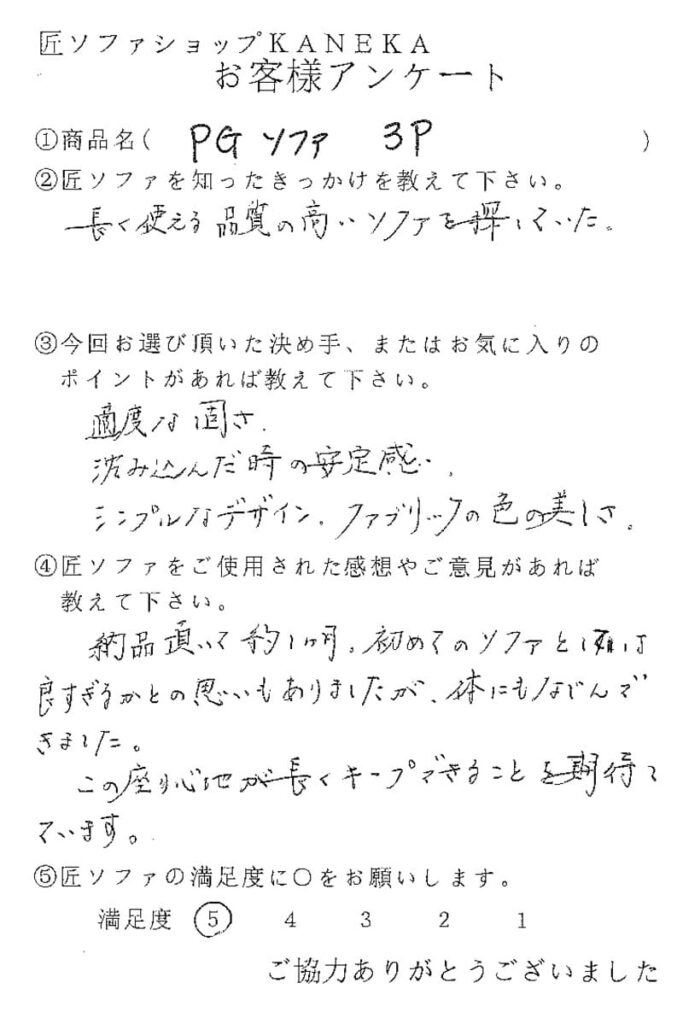 匠ソファショップKANEKA
お客様アンケート
①商品名( PG ソファ 3P )
②匠ソファを知ったきっかけを教えて下さい。
長く使える品質の高いソファを探していた。
③今回お選び頂いた決め手、またはお気に入りの
ポイントがあれば教えて下さい。
適度な固さ.
沈み込んだ時の安定感.
シンプルなデザイン. ファブリックの色の美しさ.
④匠ソファをご使用された感想やご意見があれば
教えて下さい。
納品頂いて約1ヶ月。初めてのソファとしては
良すぎるかとの思いもありましたが、体にもなじんで
きました。
この座り心地が長くキープできることを期待し
ています。
⑤匠ソファの満足度に○をお願いします。
満足度 5 4 3 2 1
ご協力ありがとうございました